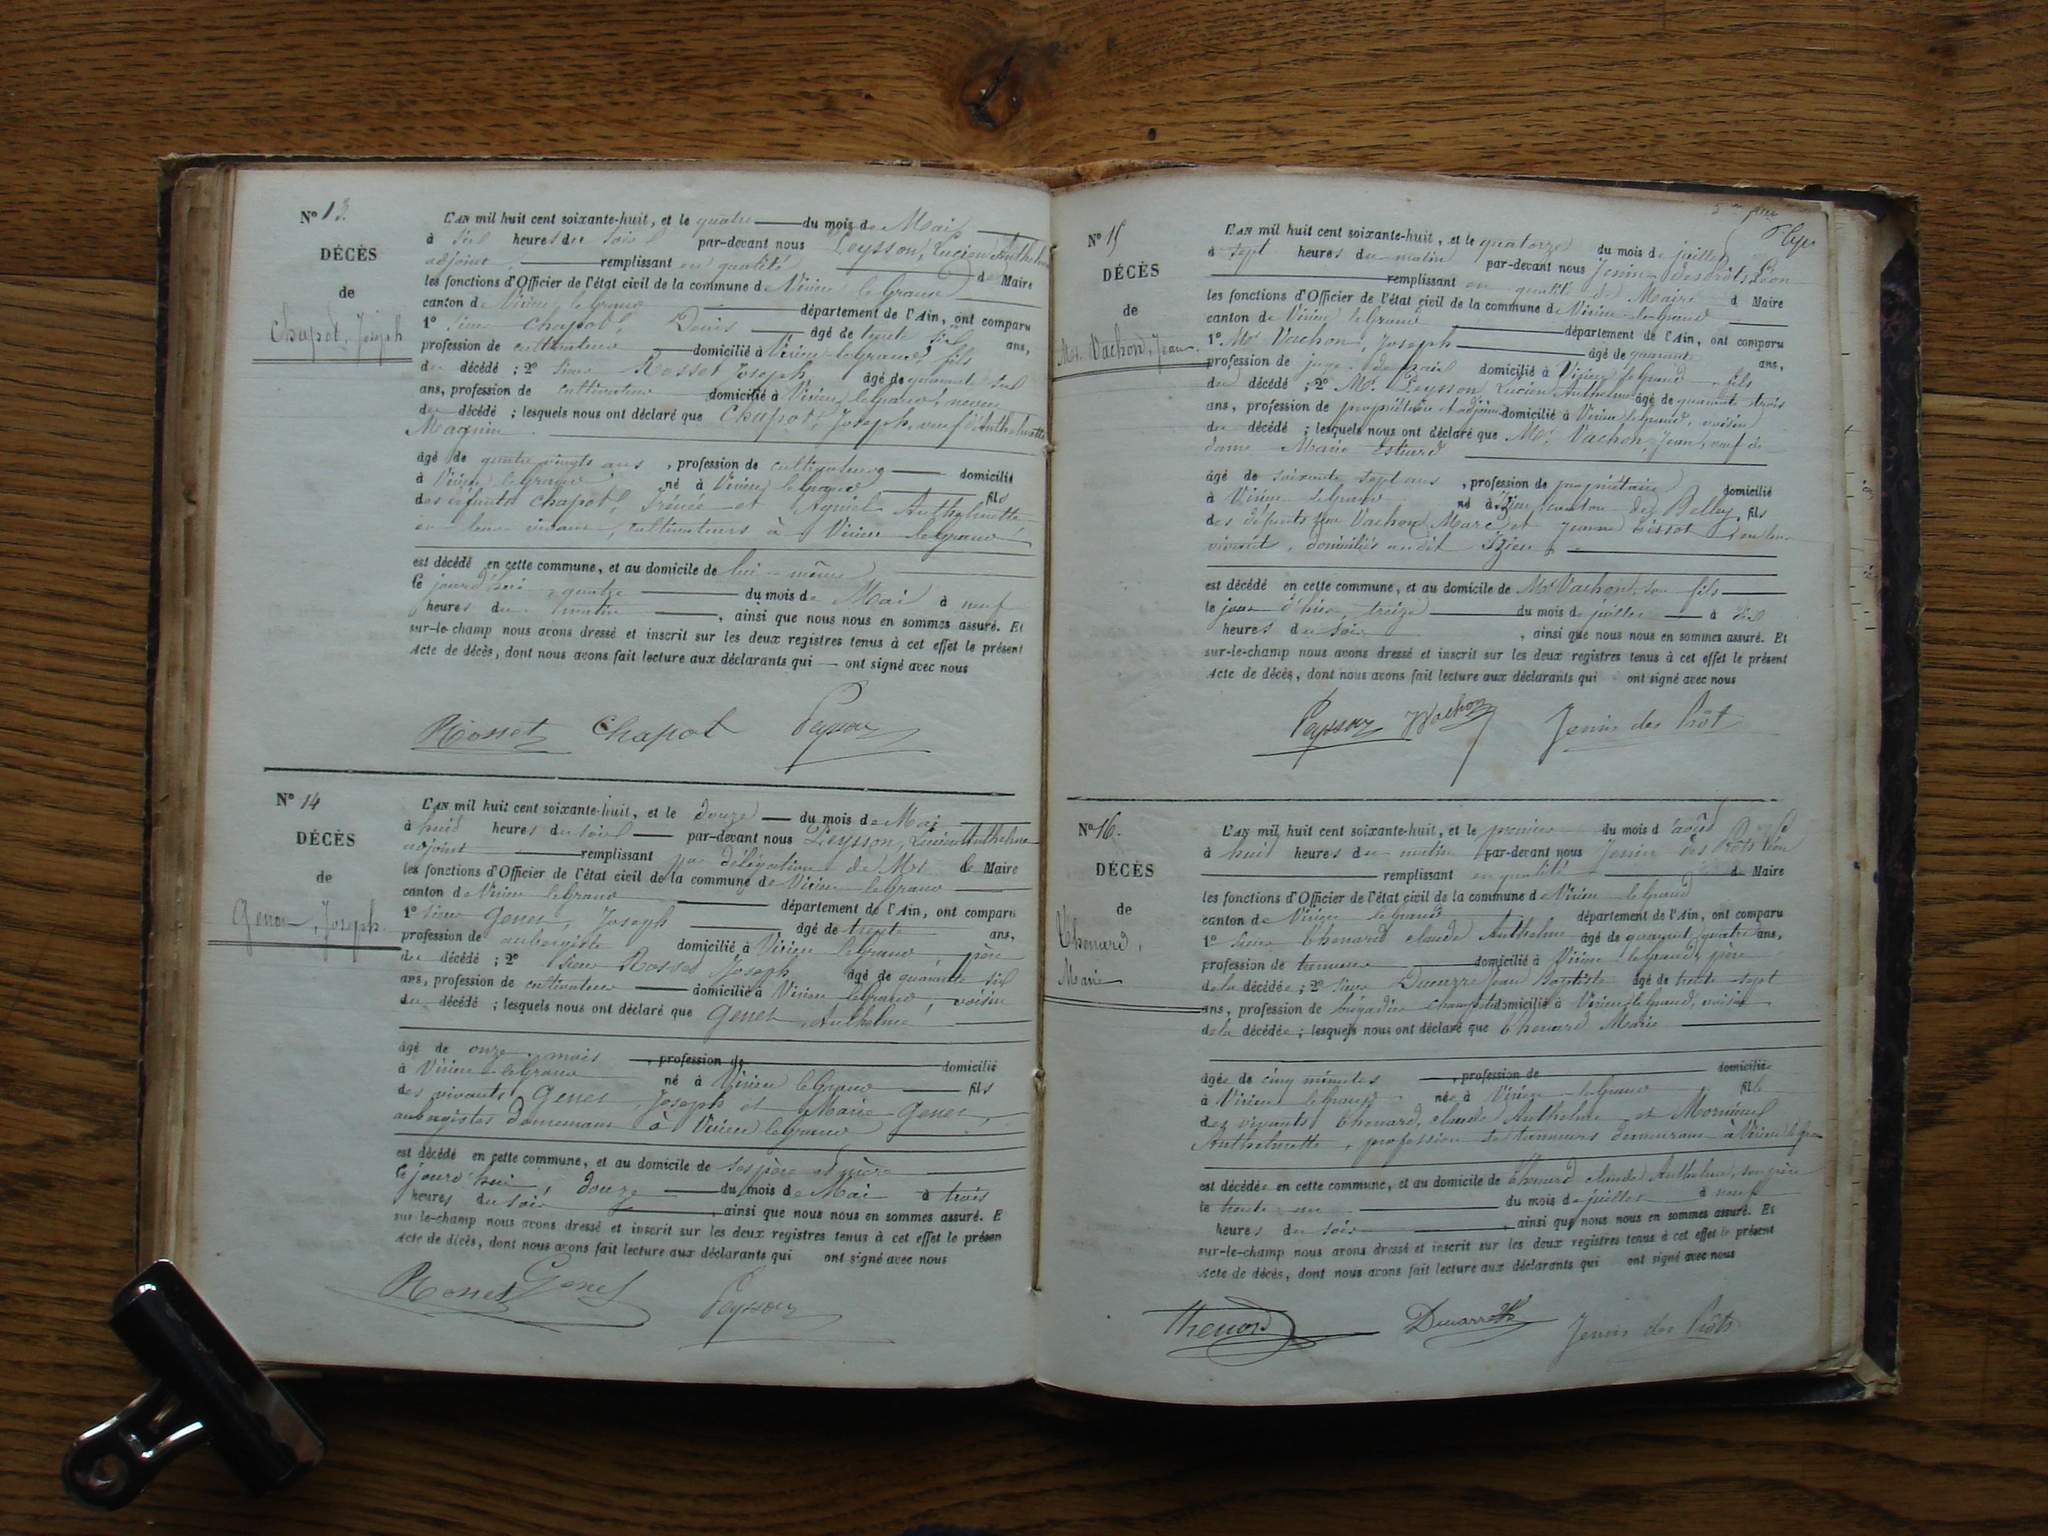 Nº 13
DÉCÈS
de
Chapot, Joseph
L'AN mil huit cent soixante-huit, et le quatre du mois de Mai
à six heures du soir par-devant nous Peysson, Lucien Anthelme
adjoint remplissant en qualité d Maire
les fonctions d'Officier de l'état civil de la commune de Virieu le Grand
canton de Virieu le Grand département de l'Ain, ont comparu
1º sieur Chapot, Denis âgé de trente six ans,
profession de cultivateur domicilié à Virieu le Grand, fils
du décédé ; 2º sieur Rosset Joseph, âgé de quarante six
ans, profession de cultivateur domicilié à Virieu le Grand, neveu
du décédé ; lesquels nous ont déclaré que Chapot, Joseph, veuf d'Anthelmette
Magnin
âgé de quatre vingts ans , profession de cultivateur domicilié
à Virieu le Grand né à Virieu le Grand fils
des défunts Chapot, Irénée et Anthelmette
en leur vivant, cultivateurs à Virieu le Grand
est décédé en cette commune, et au domicile de lui-même
le jourd'hui quatre du mois de Mai à neuf
heures du matin , ainsi que nous nous en sommes assuré. Et
sur-le-champ nous avons dressé et inscrit sur les deux registres tenus à cet effet le présent
Acte de décès, dont nous avons fait lecture aux déclarants qui ont signé avec nous
Rosset Chapot Peysson
Nº 14
DÉCÈS
de
Genet, Joseph
L'AN mil huit cent soixante-huit, et le douze du mois de Mai
à huit heures du soir par-devant nous Peysson, Lucien Anthelme
adjoint remplissant par délégation de Mr le Maire
les fonctions d'Officier de l'état civil de la commune de Virieu le Grand
canton de Virieu le Grand département de l'Ain, ont comparu
1º sieur Genet, Joseph âgé de trente ans,
profession de aubergiste domicilié à Virieu le Grand, père
du décédé ; 2º sieur Rosset Joseph âgé de quarante six
ans, profession de cultivateur domicilié à Virieu le Grand, voisin
du décédé ; lesquels nous ont déclaré que Genet Anthelme
âgé de onze mois , profession de domicilié
à Virieu le Grand né à Virieu le Grand fils
des vivants Genet, Joseph et Marie Genet,
aubergistes demeurant à Virieu le Grand
est décédé en cette commune, et au domicile de ses père et mère
le jourd'hui, douze du mois de Mai à trois
heures du soir , ainsi que nous nous en sommes assuré. E
sur-le-champ nous avons dressé et inscrit sur les deux registres tenus à cet effet le présen
Acte de décès, dont nous avons fait lecture aux déclarants qui ont signé avec nous
Rosset Genet Peysson
Nº 15
DÉCÈS
de
Mr. Vachon, Jean
L'AN mil huit cent soixante-huit, et le quatorze du mois de juillet
à sept heures du matin par-devant nous Jenin des Prôts, Léon
remplissant en qualité de Maire d Maire
les fonctions d'Officier de l'état civil de la commune de Virieu le Grand
canton de Virieu le Grand département de l'Ain, ont comparu
1º Mr Vachon, Joseph âgé de quarante ans,
profession de juge de paix domicilié à Virieu le Grand, fils
du décédé ; 2º Mr. Peysson Lucien Anthelme âgé de quarante trois
ans, profession de propriétaire et adjoint domicilié à Virieu le Grand, voisin
du décédé ; lesquels nous ont déclaré que Mr. Vachon, Jean, veuf de
dame Marie
âgé de soixante sept ans , profession de propriétaire domicilié
à Virieu le Grand né à Izieu, canton de Belley, fils
des défunts Vachon Marc et Jeanne en leur
vivant, domiciliés audit Izieu
est décédé en cette commune, et au domicile de Mr Vachon, son fils
le jour d'hier treize du mois de juillet à six
heures du soir , ainsi que nous nous en sommes assuré. Et
sur-le-champ nous avons dressé et inscrit sur les deux registres tenus à cet effet le présent
Acte de décès, dont nous avons fait lecture aux déclarants qui ont signé avec nous
Peysson Vachon Jenin des Prôts
Nº 16.
DÉCÈS
de
Thenard,
Marie
L'AN mil huit cent soixante-huit, et le premier du mois d'août
à huit heures du matin par-devant nous Jenin des Prôts Léon
remplissant en qualité d Maire
les fonctions d'Officier de l'état civil de la commune de Virieu le Grand
canton de Virieu le Grand département de l'Ain, ont comparu
1º sieur Thenard Claude Anthelme âgé de quarante quatre ans,
profession de tanneur domicilié à Virieu le Grand, père
de la décédée ; 2º sieur Jean Baptiste âgé de trente sept
ans, profession de brigadier domicilié à Virieu le Grand, voisin
de la décédée ; lesquels nous ont déclaré que Thenard Marie
âgée de cinq minutes , profession de domicilié
à Virieu le Grand née à Virieu le Grand fille
des vivants Thenard, Claude Anthelme et
Anthelmette, profession de tanneurs demeurant à Virieu le Grand
est décédée en cette commune, et au domicile de Thenard Claude Anthelme, son père
le trente un du mois de juillet à neuf
heures du soir , ainsi que nous nous en sommes assuré. Et
sur-le-champ nous avons dressé et inscrit sur les deux registres tenus à cet effet le présent
Acte de décès, dont nous avons fait lecture aux déclarants qui ont signé avec nous
Thenard Jenin des Prôts